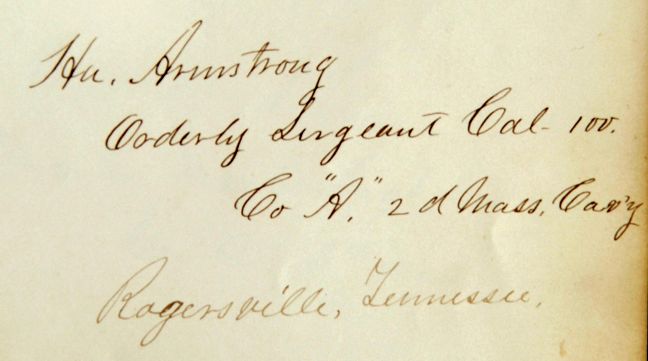 Hu. Armstrong
Orderly Sergeant Cal- 100.
Co "A." 2d Mass. Cav'y
Rogersville, Tennessee.